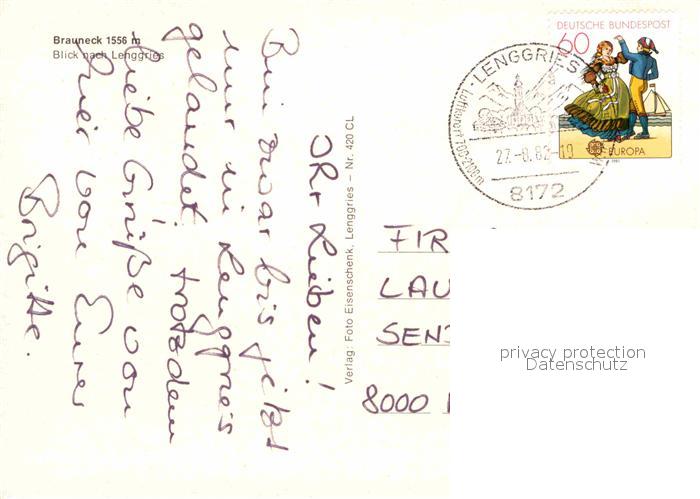 Brauneck 1556 m
Blick nach Lenggries
Ihr Lieben!
Bin zwar bis jetzt
nur in Lenggries
gelandet trotzdem
liebe Grüße von
hier von Eurer
Brigitte.
Verlag: Foto Eisenschenk, Lenggries – Nr. 420 CL
DEUTSCHE BUNDESPOST
60
EUROPA
1981
LENGGRIES
Luftkurort 700-2100m
27.-8.82-19
8172
FIR
LAU
SEN
8000
privacy protection
Datenschutz